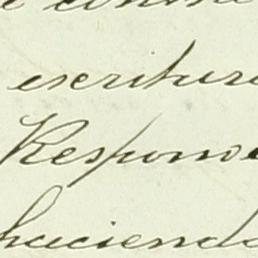 escritura
Responde
haciendo